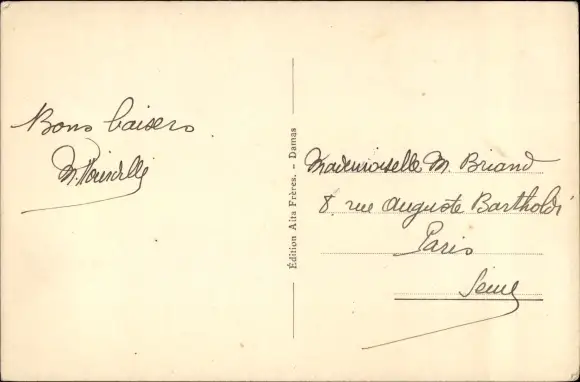 Bons baisers
M.
Édition Aita Frères. - Damas
Mademoiselle M. Briand
8, rue Auguste Bartholdi
Paris
Seine